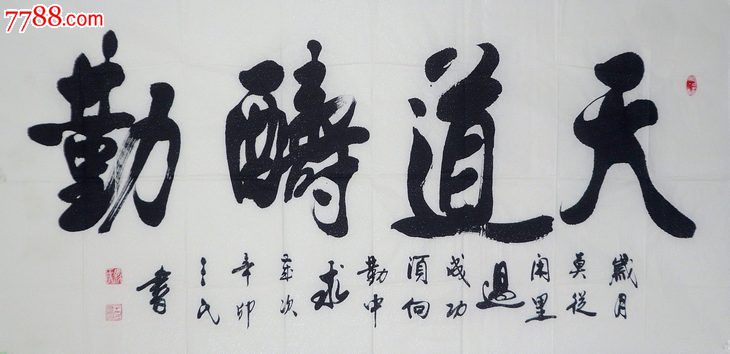 7788.com
天道醻勤
歲月莫從閑里過成功須向勤中求歲次辛卯
書